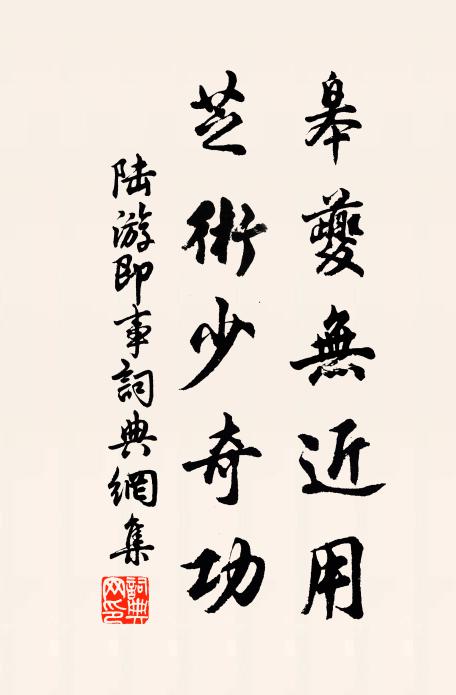 皋夔無近用
芝術少奇功
陸游即事詞典網集
詞典网印